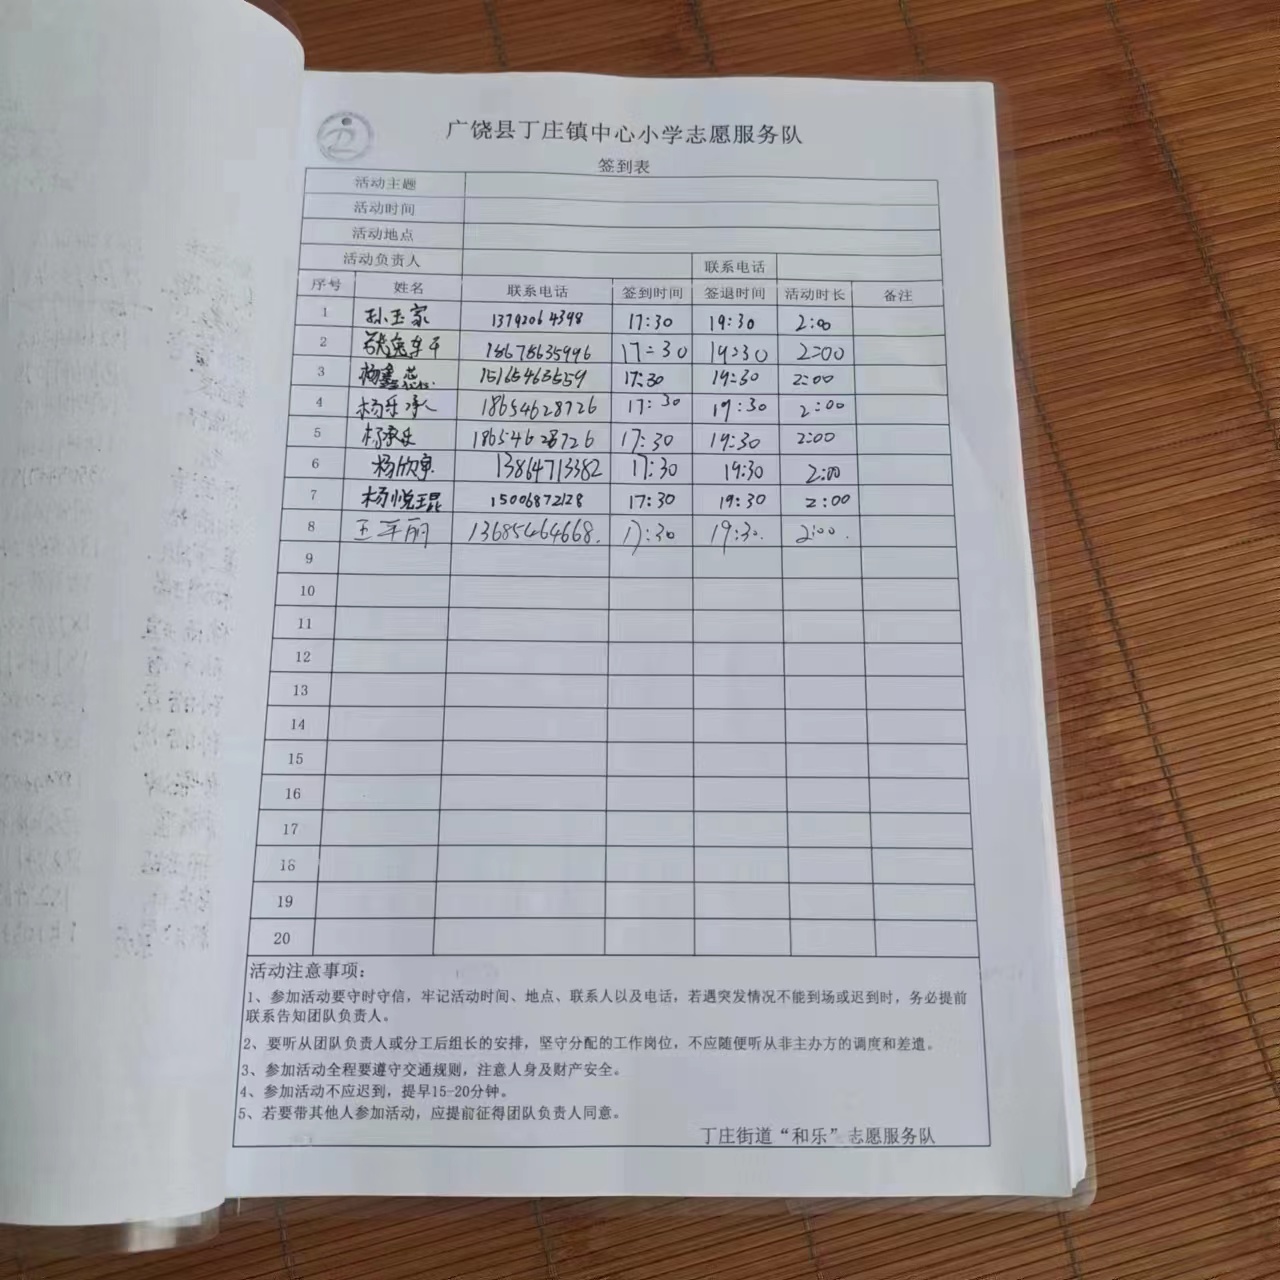 广饶县丁庄镇中心小学志愿服务队
签到表
活动主题
活动时间
活动地点
活动负责人 联系电话
序号 姓名 联系电话 签到时间 签退时间 活动时长 备注
1 孙玉家 13792064398 17:30 19:30 2:00
2 18678635996 17:30 19:30 2:00
3 杨鑫蕊 15165463559 17:30 19:30 2:00
4 杨乐承 18654628726 17:30 19:30 2:00
5 杨承乐 18654628726 17:30 19:30 2:00
6 杨欣 13864713382 17:30 19:30 2:00
7 杨悦琨 15006872128 17:30 19:30 2:00
8 王 丽 13685464668. 17:30 19:30. 2:00.
9
10
11
12
13
14
15
16
17
18
19
20
活动注意事项：
1、参加活动要守时守信，牢记活动时间、地点、联系人以及电话，若遇突发情况不能到场或迟到时，务必提前
联系告知团队负责人。
2、要听从团队负责人或分工后组长的安排，坚守分配的工作岗位，不应随便听从非主办方的调度和差遣。
3、参加活动全程要遵守交通规则，注意人身及财产安全。
4、参加活动不应迟到，提早15-20分钟。
5、若要带其他人参加活动，应提前征得团队负责人同意。
丁庄街道“和乐”志愿服务队